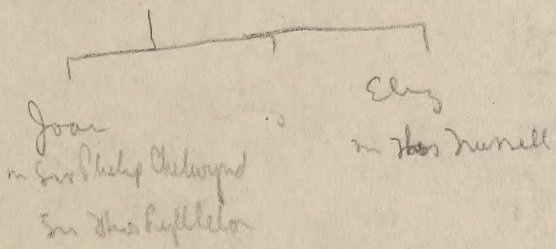 Joan
m Sir Philip Chetwynd
Sir Thos
Eliz
m Thos Trussell